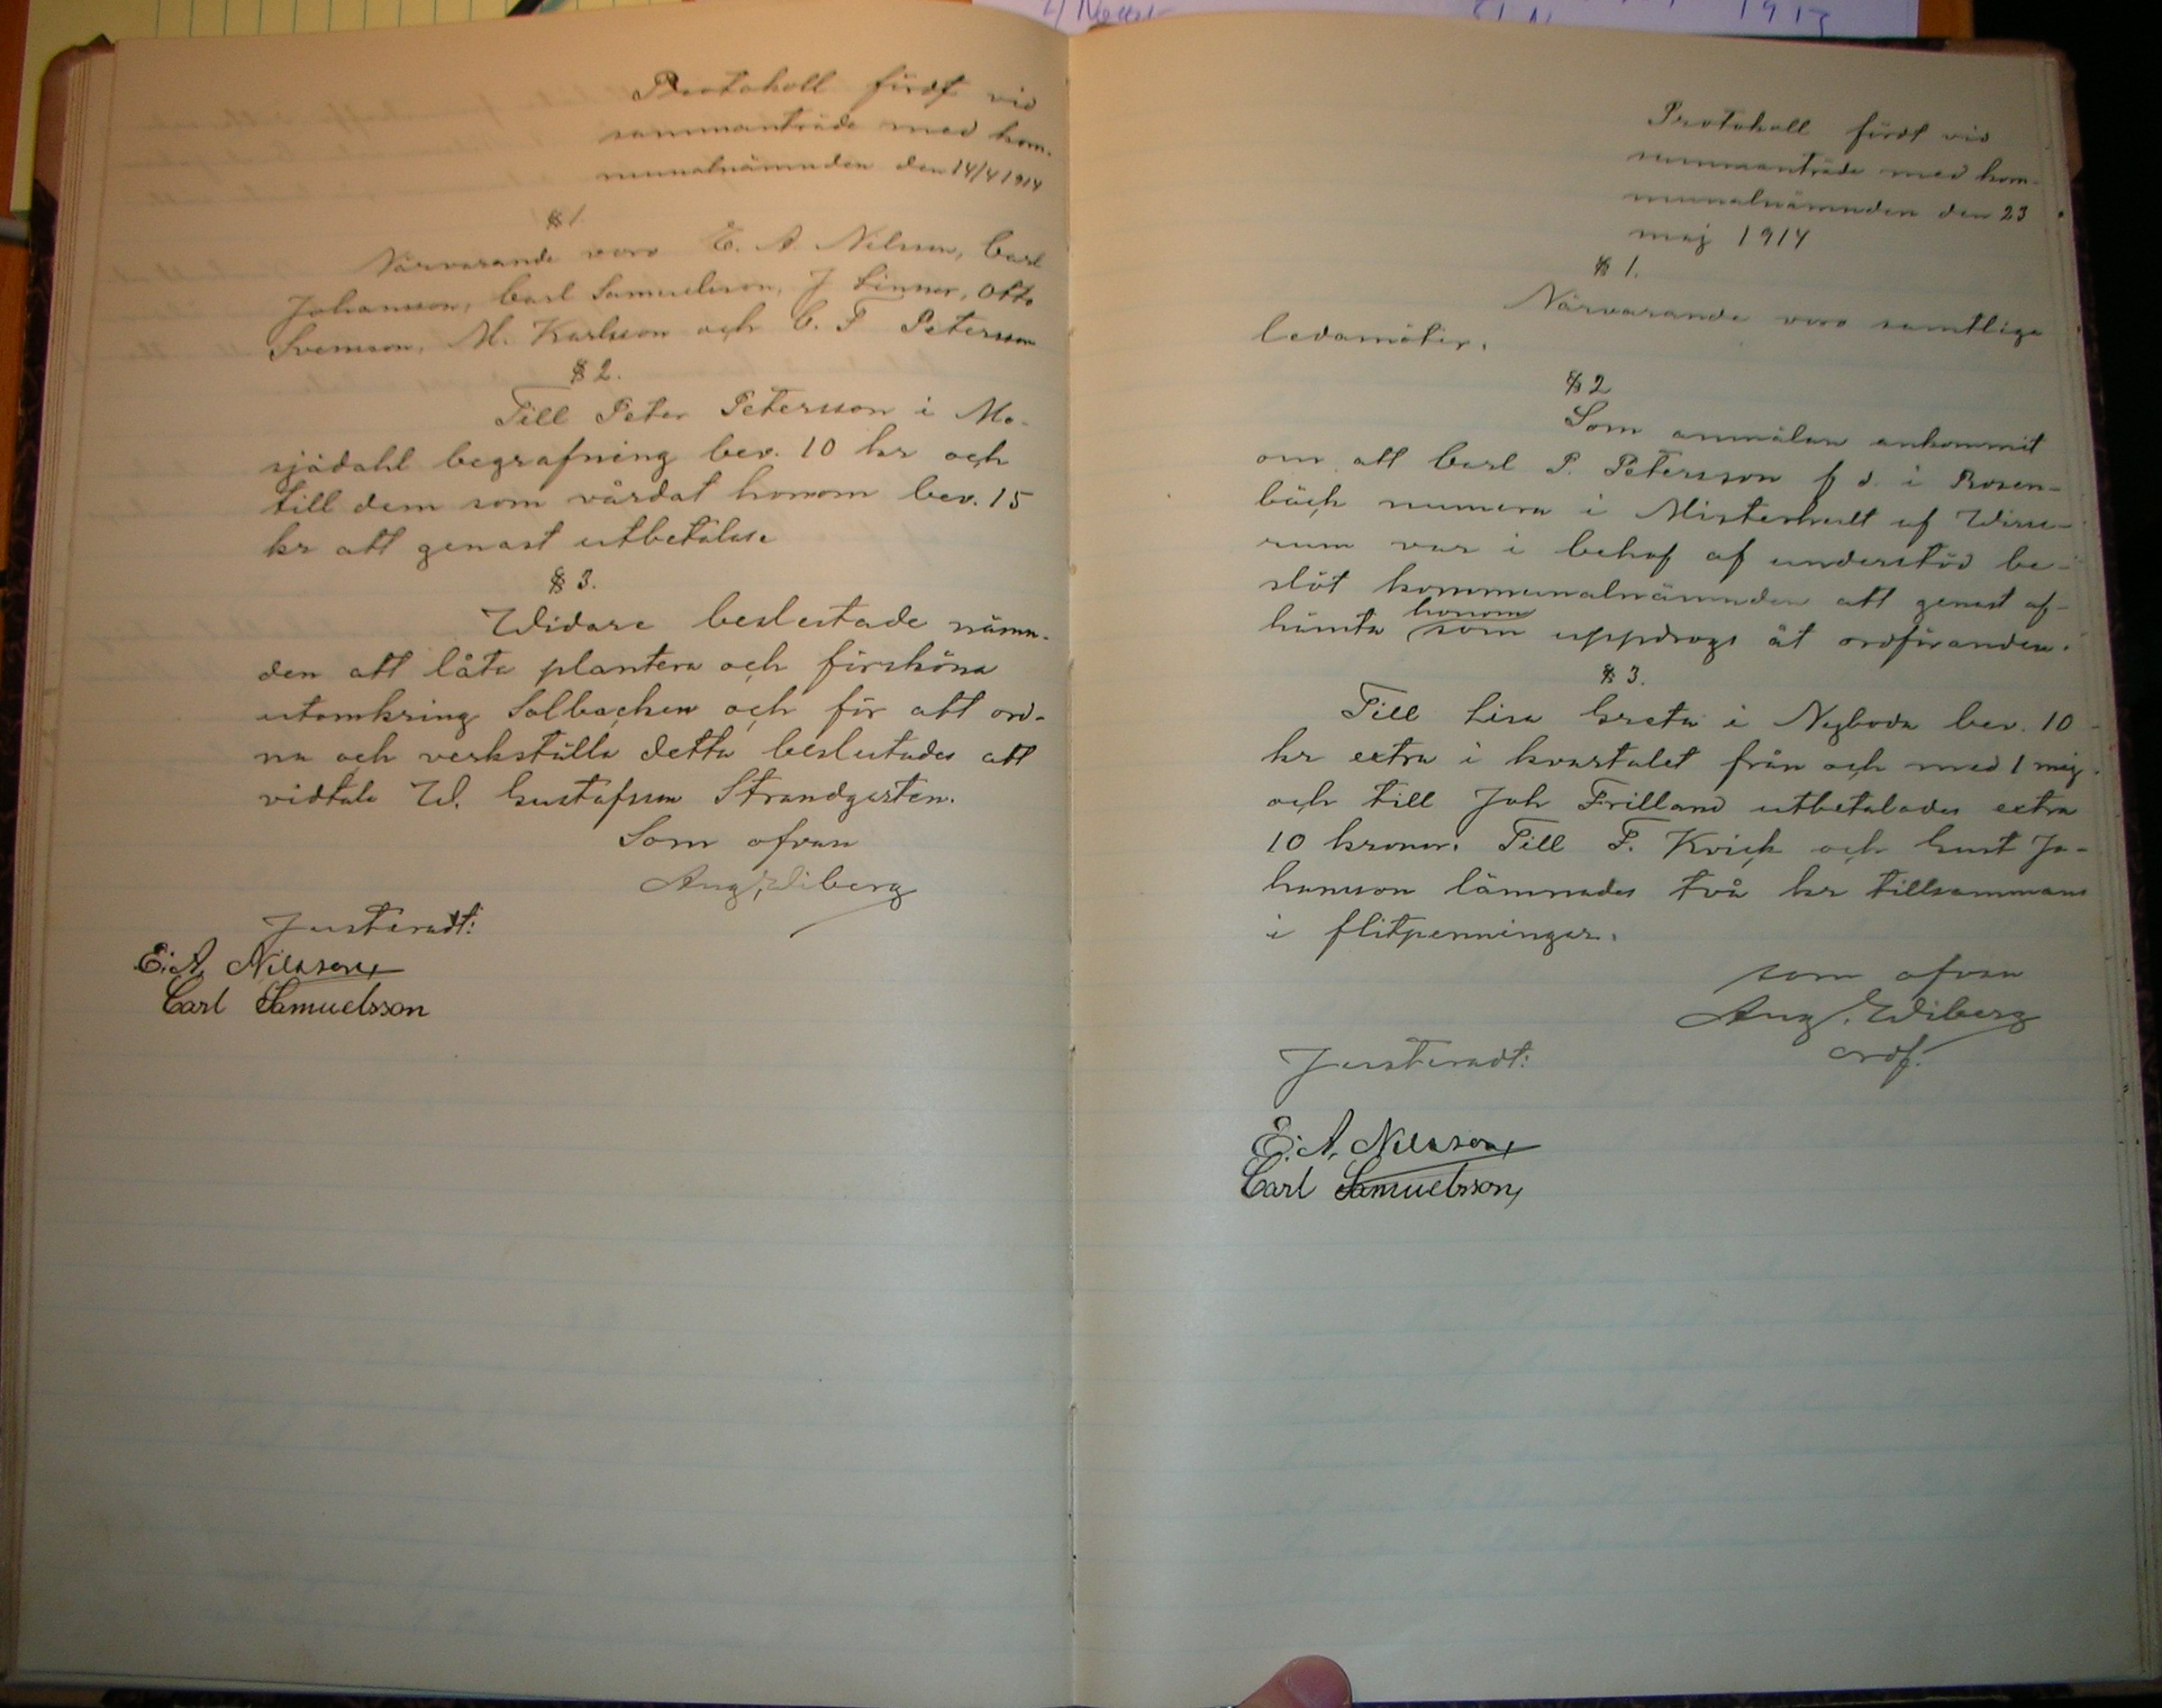 Protokoll fördt vid
sammanträde med kom-
munalnämnden den 14/4 1914
§ 1.
Närvarande voro E. A. Nilsson, Carl
Johansson, Carl Samuelsson, J Linner, Otto
Svensson, M. Karlsson och C. F Petersson
§ 2.
Till Peter Petersson i Mo-
sjödahl begrafning bev. 10 kr och
till dem som vårdat honom bev. 15
kr att genast utbetalas
§ 3.
Widare beslutade nämn-
den att låta plantera och förshöna
utomkring Solbacken och för att ord-
na och verkställa detta beslutades att
vidtala W. Gustafsson Strandgarten.
Som ofvan
Aug, Wiberg
Justeradt:
E. A. Nilsson,
Carl Samuelsson
Protokoll fördt vid
sammanträde med kom-
munalnämnden den 23
maj 1914
§ 1.
Närvarande voro samtliga
ledamöter.
§ 2
Som anmälan ankommit
om att Carl P. Petersson f d. i Rosen-
bäck numera i Misterhult af Wisse-
rum var i behof af understöd be-
slöt kommunalnämnden att genast af-
hämta honom som uppdrogs åt ordföranden.
§ 3.
Till Lisa Greta i Nyboda bev. 10
kr extra i kvartalet från och med 1 maj.
och till Joh Frilland utbetalades extra
10 kronor. Till F. Kvick och Gust Jo-
hansson lämnades två kr tillsammans
i flitpenningar.
som ofvan
Aug. Wiberg
ordf.
Justeradt:
E. A. Nilsson,
Carl Samuelsson,